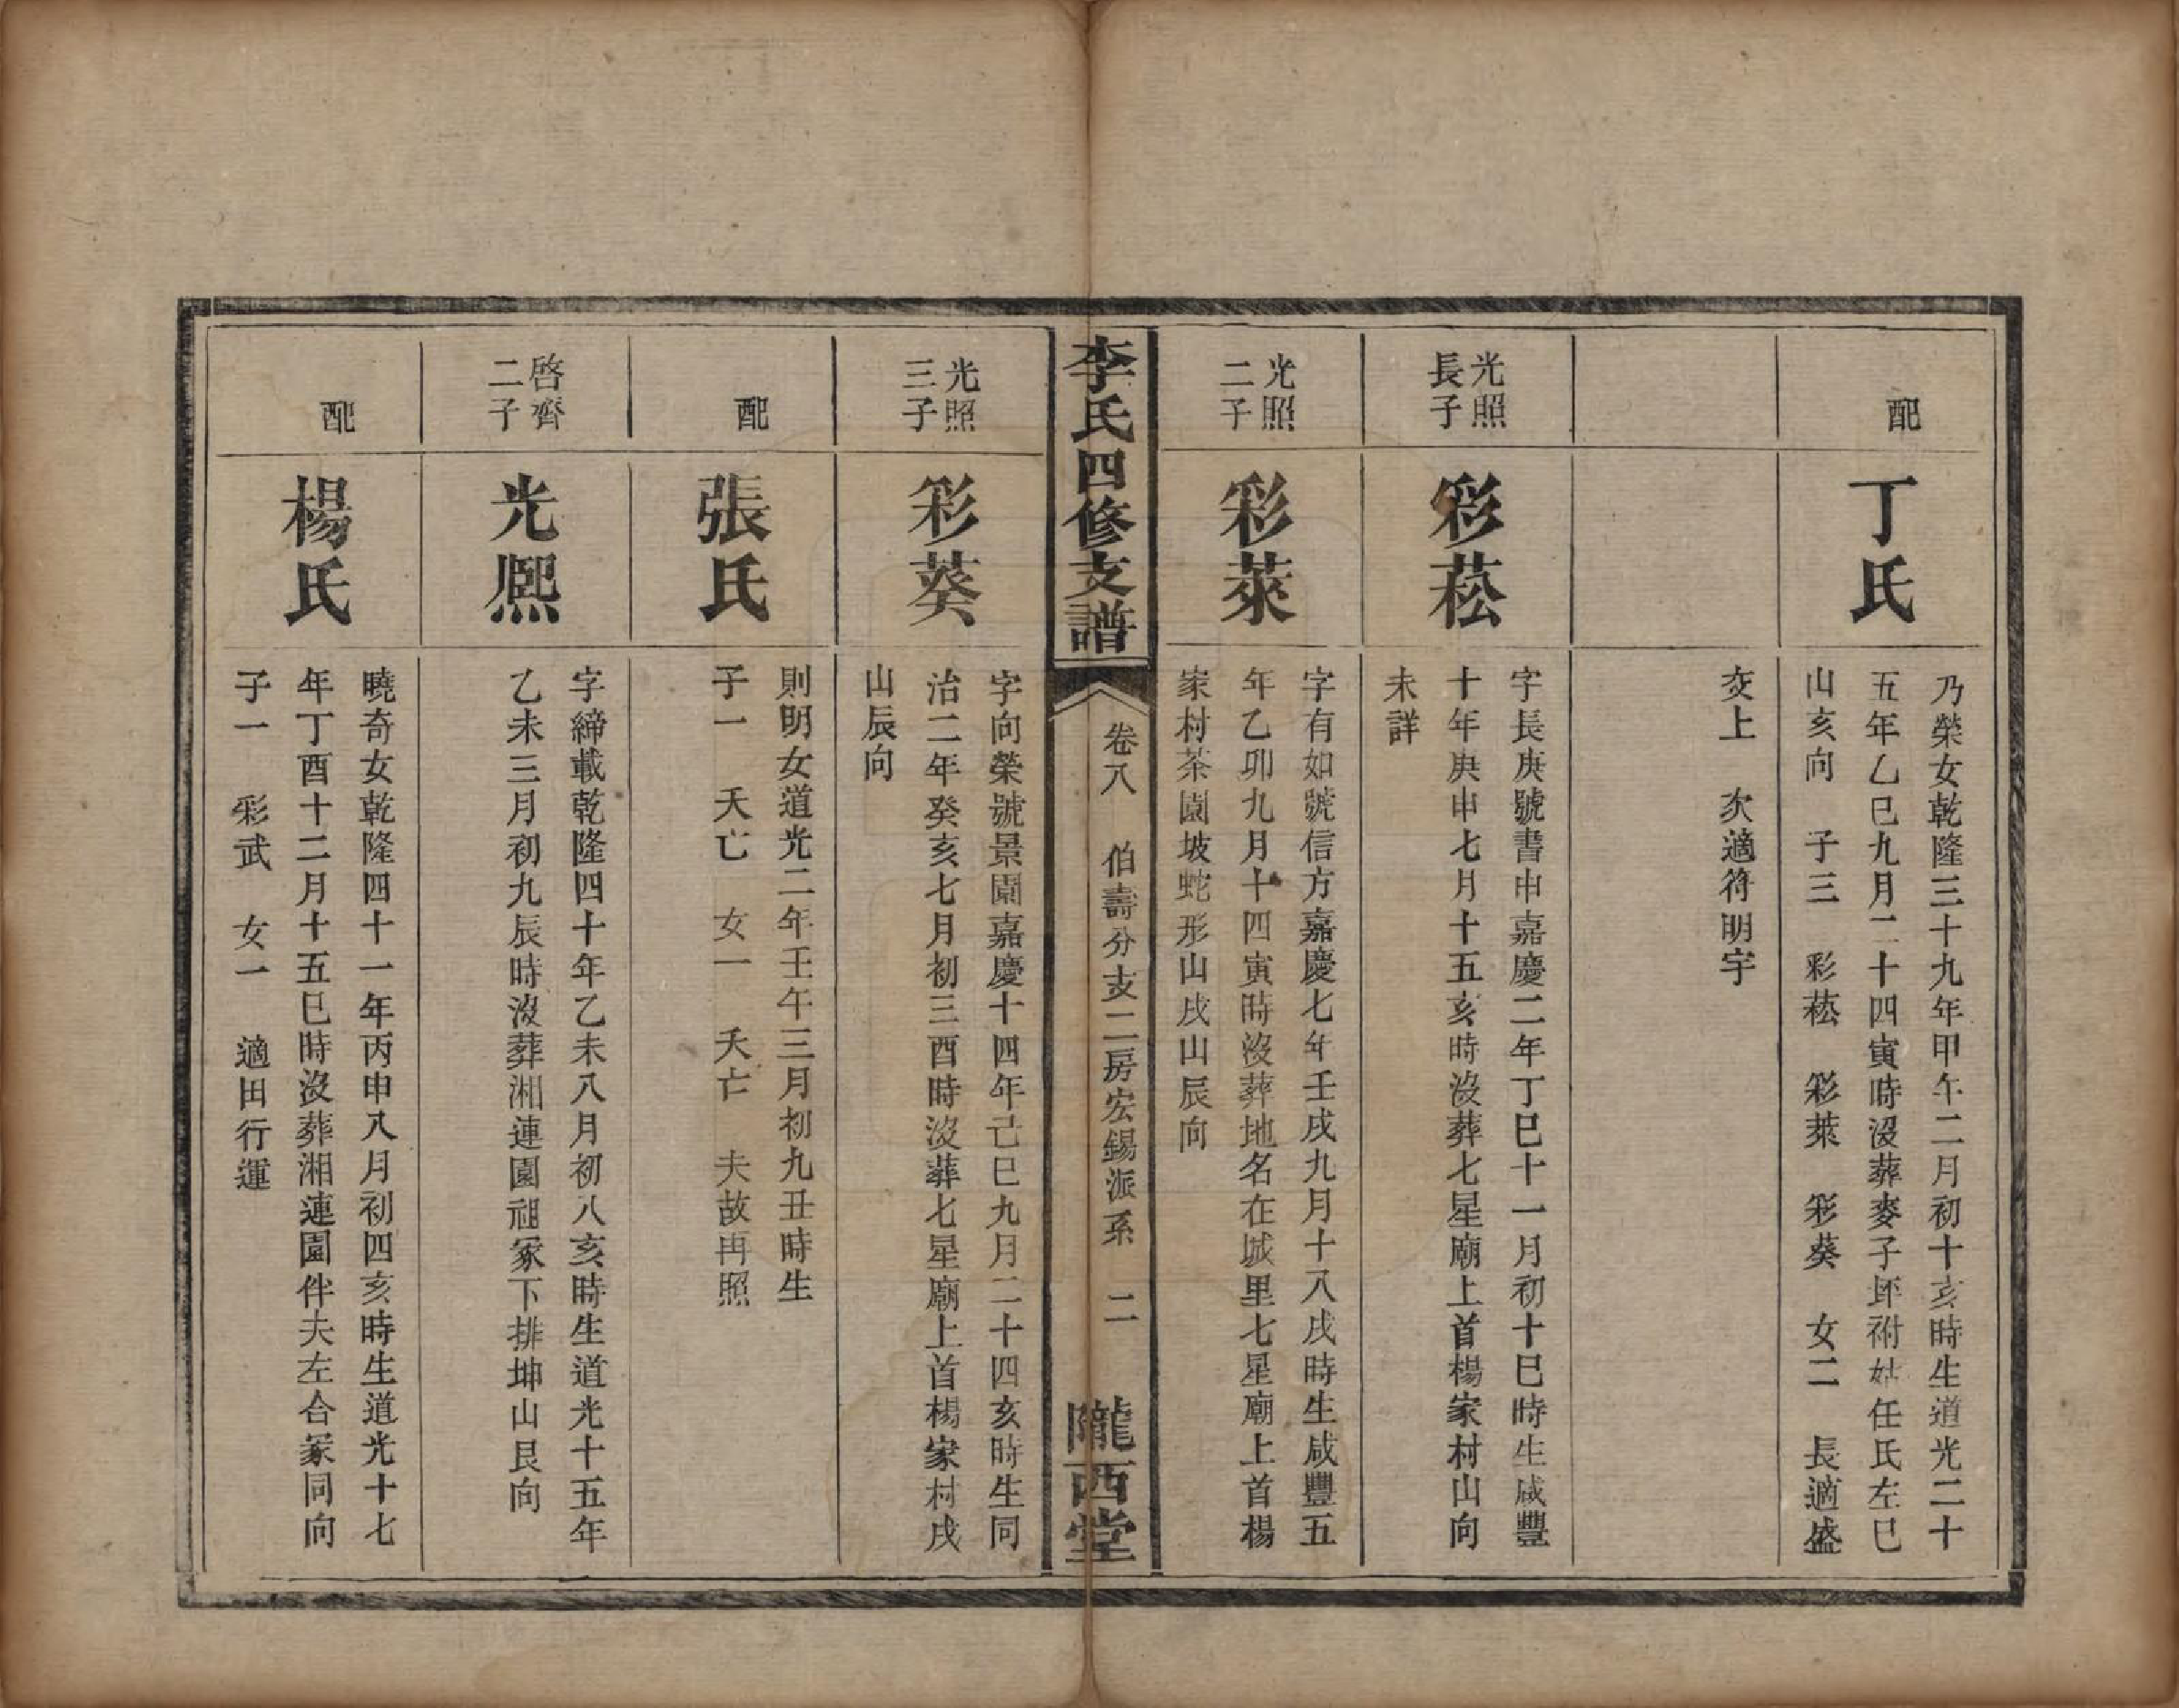 配
丁氏
乃榮女乾隆三十九年甲午二月初十亥時生道光二十
五年乙巳九月二十四寅時沒葬麥子坪祔姑任氏左巳
山亥向 子三 彩菘 彩萊 彩葵 女二 長適盛
交上 次適符明宇
光照
長子
彩菘
字長庚號書申嘉慶二年丁巳十一月初十巳時生咸豐
十年庚申七月十五亥時沒葬七星廟上首楊家村山向
未詳
光照
二子
彩萊
字有如號信方嘉慶七年壬戌九月十八戌時生咸豐五
年乙卯九月十四寅時沒葬地名在城里七星廟上首楊
家村茶園坡蛇形山戌山辰向
李氏四修支譜
卷八 伯壽分支二房宏錫派系 二
隴西堂
光照
三子
彩葵
字向榮號景園嘉慶十四年己巳九月二十四亥時生同
治二年癸亥七月初三酉時沒葬七星廟上首楊家村戌
山辰向
配
張氏
則明女道光二年壬午三月初九丑時生
子一 夭亡 女一 夭亡 夫故再照
啓齊
二子
光熙
字締載乾隆四十年乙未八月初八亥時生道光十五年
乙未三月初九辰時沒葬湘連園祖冢下排坤山艮向
配
楊氏
曉奇女乾隆四十一年丙申八月初四亥時生道光十七
年丁酉十二月十五巳時沒葬湘連園伴夫左合冢同向
子一 彩武 女一 適田行運